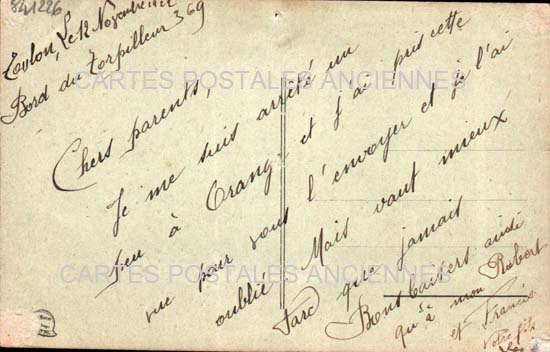 841226
Toulon, Le 12 Novembre
Bord du Torpilleur 369
CARTES POSTALES ANCIENNES
Chers parents,
Je me suis arrêté un
peu à Orange et j'ai pris cette
vue pour vous l'envoyer et je l'ai
oublié Mais vaut mieux
Tard que jamais
Bons baisers ainsi
qu'à mon Robert
et Francis
Votre fils
CARTES POSTALES ANCIENNES